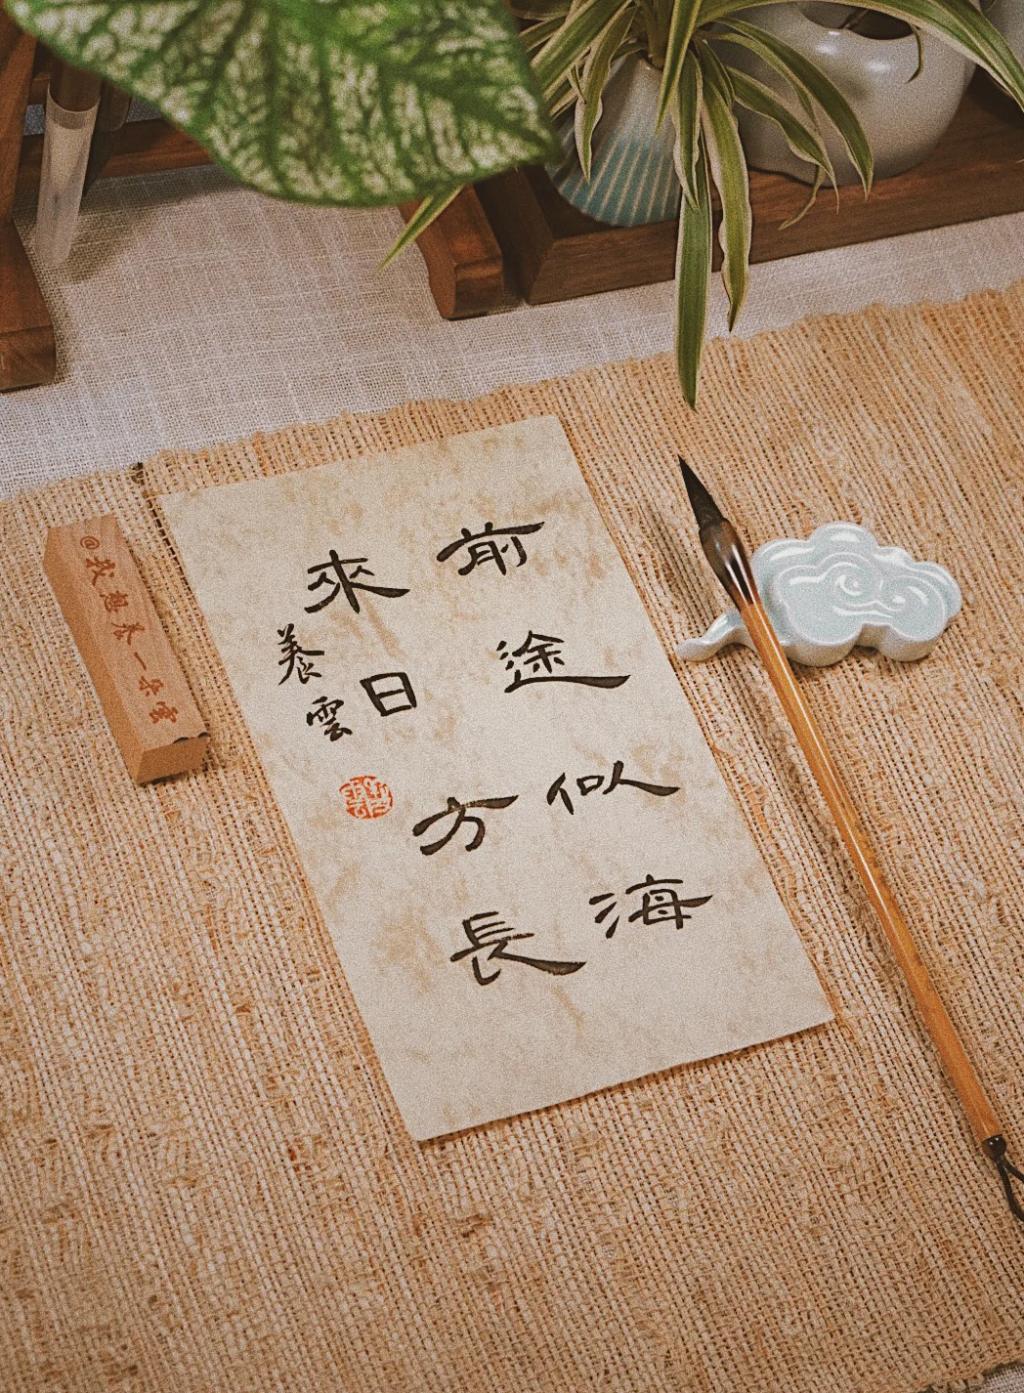 前途似海
來日方長
養雲
@我想养一朵雲